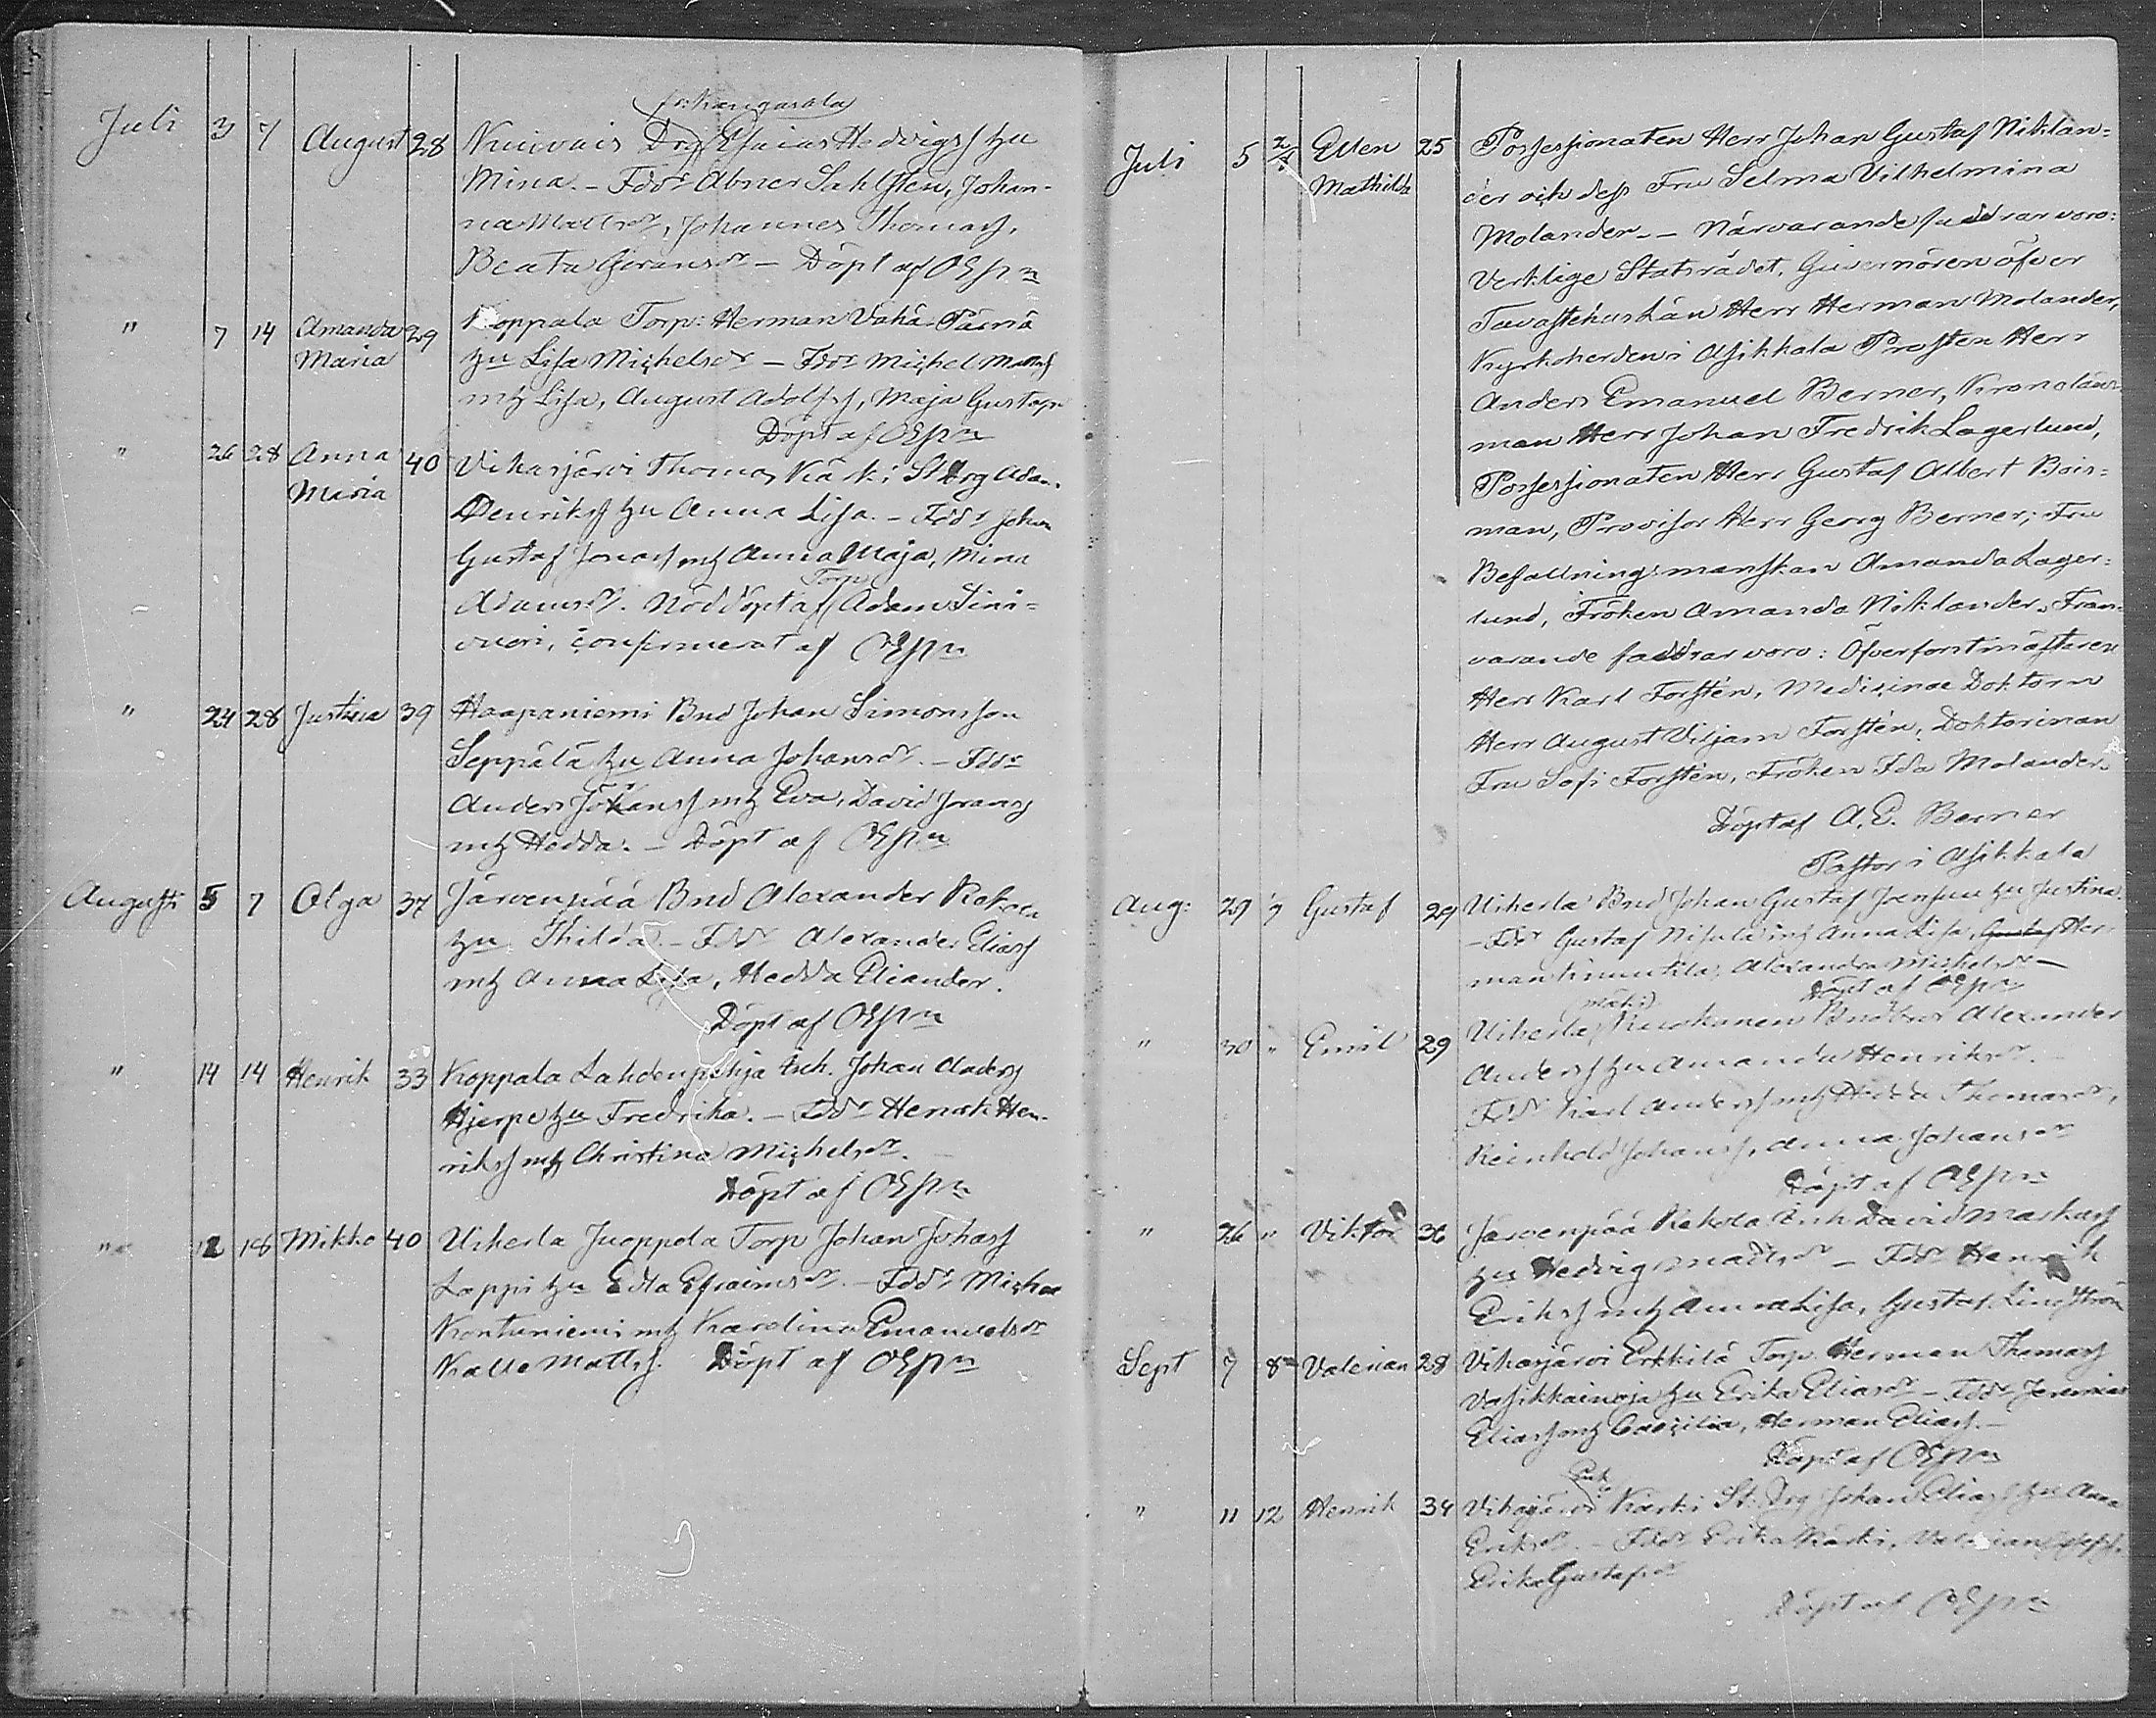 fr. Kangasala
Juli 3 7 August 28 Kuivais Drg Esaias Hedvigss hu
Mina. – Fddr Abner Sahlsten, Johan-
na Mattsdr, Johannes Thomass,
Beata Göransdr – Döpt af
" 7 14 Amanda 29 Koppala Torp: Herman Vähä-Päsnä
Maria hu Lisa Michelsdr – Fddr Michel Mattss
mh Lisa, August Adolfss, Maja Gustafs
Döpt af
" 26 28 Anna 40 Viharjärvi Thomas Käski St Drg Adam
Maria Henrikss hu Anna Lisa. – Fddr Johan
Gustaf Jonass mh Anna Maja, Mina
Torp
Adamsdr. Nöddöpt af Adam Sini-
vuori, confirmerat af
" 24 28 Justina 39 Haapaniemi Bnd Johan Simonsson
Seppälä hu Anna Johansdr. – Fddr
Anders Johanss mh Eva, David
mh Hedda. – Döpt af
Augusti 5 7 Olga 37 Järvenpää Bnd Alexander Kekola
hu Thilda. – Fddr Alexander Eliass
mh Anna Lisa, Hedda Eliander.
Döpt af
" 14 14 Henrik 33 Koppala Lahdenpohja Inh. Johan Anderss
Hjerpe hu Fredrika. – Fddr Henrik Hen-
rikss mh Christina Michelsdr.
Döpt af
" 12 18 Mikko 40 Urherla Juoppola Torp Johan Johass
Lappi hu Edla Efraimsdr. – Fddr Michel
Kontuniemi mh Karolina Emanuelsdr
Kalle Mattss. Döpt af
Juli 5 Ellen 25 Possessionaten Herr Johan Gustaf Niklan=
Mathilda der och dess Fru Selma Vilhelmina
Molander. – Närvarande faddrar voro:
Verklige Statsrådet, Guvernören öfver
Tavastehus Län Herr Herman Molander,
Kyrkoherden i Asikkala Prosten Herr
Anders Emanuel Berner, Kronoläns
man Herr Johan Fredrik Lagerlund,
Possessionaten Herr Gustaf Albert Bois=
man, Provisor Herr Georg Berner; Fru
Befallningsmanskan Amanda Lager=
lund, Fröken Amanda Niklander. Från-
varande faddrar voro: Öfverforstmästaren
Herr Karl Forstén, Medicinae Doktorn
Herr August Viljam Forstén, Doktorinnan
Fru Sofi Forstén, Fröken Ida Molander.
Döpt af A. E. Berner
Pastor i Asikkala
Aug: 29 Gustaf 29 Urherla Bnd Johan Gustaf Joensuu hu Justina.
– Fddr Gustaf Nisula mh Anna Lisa, Gustaf Her-
man Alexandra Michelsdr –
Döpt af
mäki
" 30 " Emil 29 Urherla Ruokanen Alexander
Anderss hu Amanda Henriksdr. –
Fddr Karl Anderss mh Hedda Thomasdr,
Reinhold Johanss, Anna Johansdr
Döpt af
" 26 " Viktor 36 Järvenpää Kekola Inh David Markuss
hu Hedvig Mattsdr – Fddr Henrik
Erikss mh Anna Lisa, Gustaf Lindström
Sept 7 8 Valerian 28 Viharjärvi Erkkilä Torp. Herman Thomass
Vasikkainoja hu Erika Eliasdr – Fddr Jeremias
Eliass mh Caecilia, Herman Eliass. –
Döpt af
" 11 12 Henrik 34 Viharjärvi Käski St. Drg Johan Eliass hu Anna
Eriksdr. – Fddr Erika Käski, Valerian
Erika Gustafsdr
Döpt af